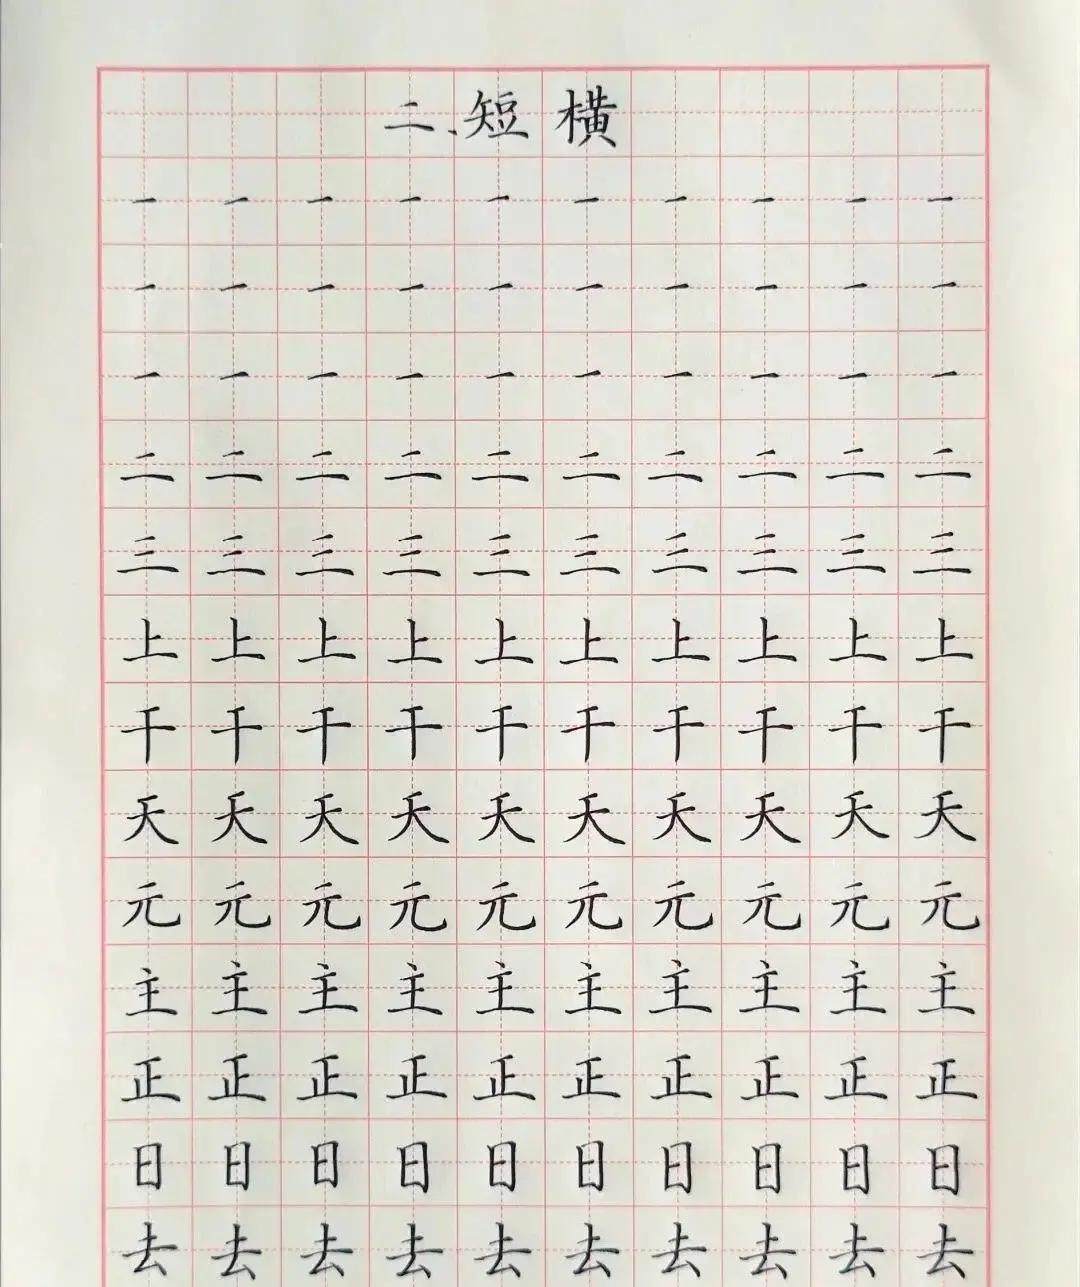 二、短横
一一一一一一一一一一
一一一一一一一一一一
一一一一一一一一一一
二二二二二二二二二二
三三三三三三三三三三
上上上上上上上上上上
干干干干干干干干干干
天天天天天天天天天天
元元元元元元元元元元
主主主主主主主主主主
正正正正正正正正正正
日日日日日日日日日日
去去去去去去去去去去